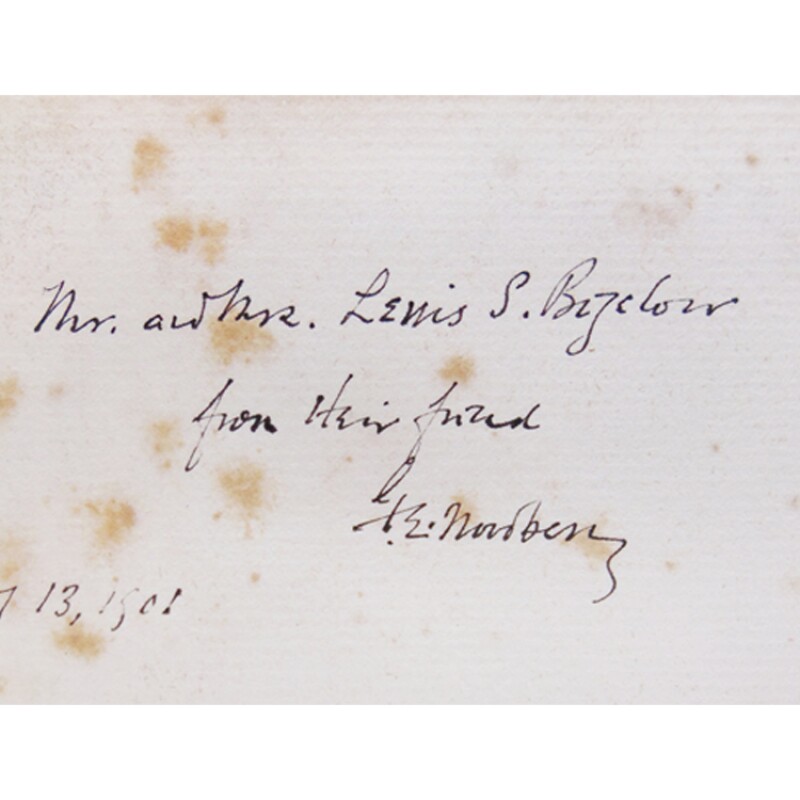 Mr. and Mrs. Lewis S. Bigelow
from their friend
13, 1901